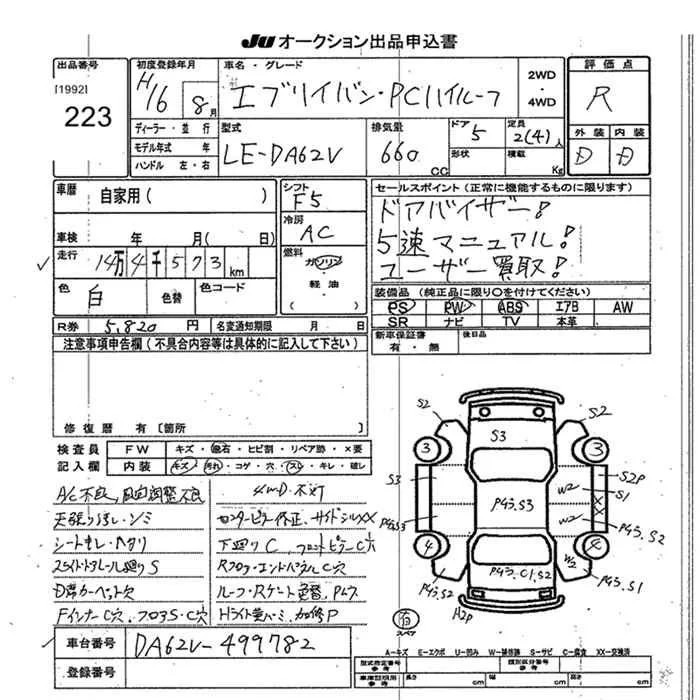 JU オークション出品申込書
出品番号
[1992]
223
初度登録年月
H16 8月
車名・グレード
エブリイバン・PCハイルーフ
2WD
・
4WD
評価点
R
ディーラー・並行
モデル年式 年
ハンドル 左・右
型式
LE-DA62V
排気量
660
CC
ドア
5
形状
定員
2(4)人
積載
Kg
外装 内装
D D
車歴 自家用( )
車検 年 月( 日)
走行 14万4千573km
色 白
色替
色コード
シフト
F5
冷房
AC
燃料
ガソリン
・
軽油
・
( )
セールスポイント(正常に機能するものに限ります)
ドアバイザー!
5速マニュアル!
ユーザー買取!
装備品(純正品に限り○を付けてください)
PS PW ABS エアB AW
SR ナビ TV 本革
R券 5,820円
名変通知期限 月 日
新車保証書
有・無
後日品
注意事項申告欄(不具合内容等は具体的に記入して下さい)
修復歴 有〔箇所 〕
検査員
記入欄
FW キズ・飛石・ヒビ割・リペア跡・×要
内装 キズ・汚れ・コゲ・穴・スレ・キレ・破レ
A/C不良,風向調整不良
4WD不灯
天張り汚レ・シミ
センターピラー修正、サイドシルXX
シートキレ・ヘタリ
下廻りC、フロントピラーC穴
スライドドアレール廻りS
Rフロア・エンドパネルC穴
D席カーペット穴
Fインナー C穴 フロアS・C穴
Hライト黄バミ、加修P
車台番号 DA62V-499782
登録番号
S2
S3
S2
3
3
S3
W2
S2P
S1
XX
P4ろ.S3
P4ろ.S3
W2
P4ろ.S2
4
4
P4ろ.C1.S2
W2
P4ろ.S2
P4ろ.S1
H2P
有
スペア
A-キズ E-エクボ U-凹み W-補修跡 S-サビ C-腐食 XX-交換済
型式指定番号
参考
類別区分番号
参考
車庫証明用
参考
長さ cm
幅 cm
高さ cm